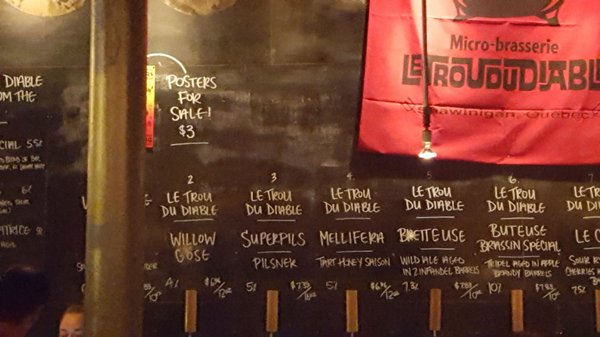 DIABLE
OM THE
CIAL 5.5%
6%
Micro-brasserie
LE TROU DU DIABLE
Shawinigan, Québec
POSTERS
FOR
SALE!
$3
2
LE TROU
DU DIABLE
WILLOW
GOSE
4%
3
LE TROU
DU DIABLE
SUPERPILS
PILSNER
5%
4
LE TROU
DU DIABLE
MELLIFERA
TART HONEY SAISON
5%
5
LE TROU
DU DIABLE
BRETTEUSE
WILD ALE AGED
IN ZINFANDEL BARRELS
7.3%
6.
LE TROU
DU DIABLE
BUTEUSE
BRASSIN SPÉCIAL
TRIPEL AGED IN APPLE
BRANDY BARRELS
10%
7
LE TROU
DU DIABLE
SOUR
CHERRIES